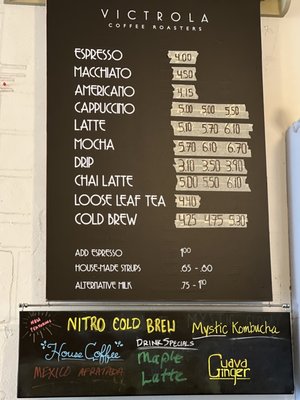 VICTROLA
COFFEE ROASTERS
ESPRESSO 4.00
MACCHIATO 4.50
AMERICANO 4.15
CAPPUCCINO 5.00 5.00 5.50
LATTE 5.10 5.70 6.10
MOCHA 5.70 6.10 6.70
DRIP 3.10 3.50 3.90
CHAI LATTE 5.00 5.50 6.10
LOOSE LEAF TEA 4.40
COLD BREW 4.25 4.75 5.30
ADD ESPRESSO 1.00
HOUSE-MADE SYRUPS .65 - .80
ALTERNATIVE MILK .75 - 1.00
NOW FEATURING
NITRO COLD BREW
Mystic Kombucha
House Coffee
DRINK SPECIALS
Guava
Ginger
MEXICO
Maple
Latte